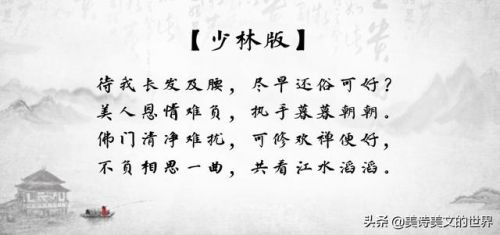 【少林版】
待我长发及腰，尽早还俗可好？
美人恩情难负，执手暮暮朝朝。
佛门清净难扰，可修欢禅便好，
不负相思一曲，共看江水滔滔。
头条 @美诗美文的世界